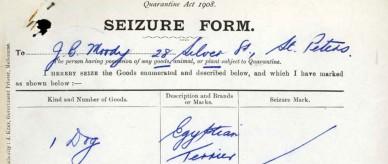 Quarantine Act 1908.
SEIZURE FORM.
To J. B. Moody 28 Silver St., St. Peters.
The person having possession of any goods, animal, or plant subject to Quarantine.
I HEREBY SEIZE the Goods enumerated and described below, and which I have marked
as shown below :—
Kind and Number of Goods.
Description and Brands
or Marks.
Seizure Mark.
1 Dog
Egyptian
Terrier